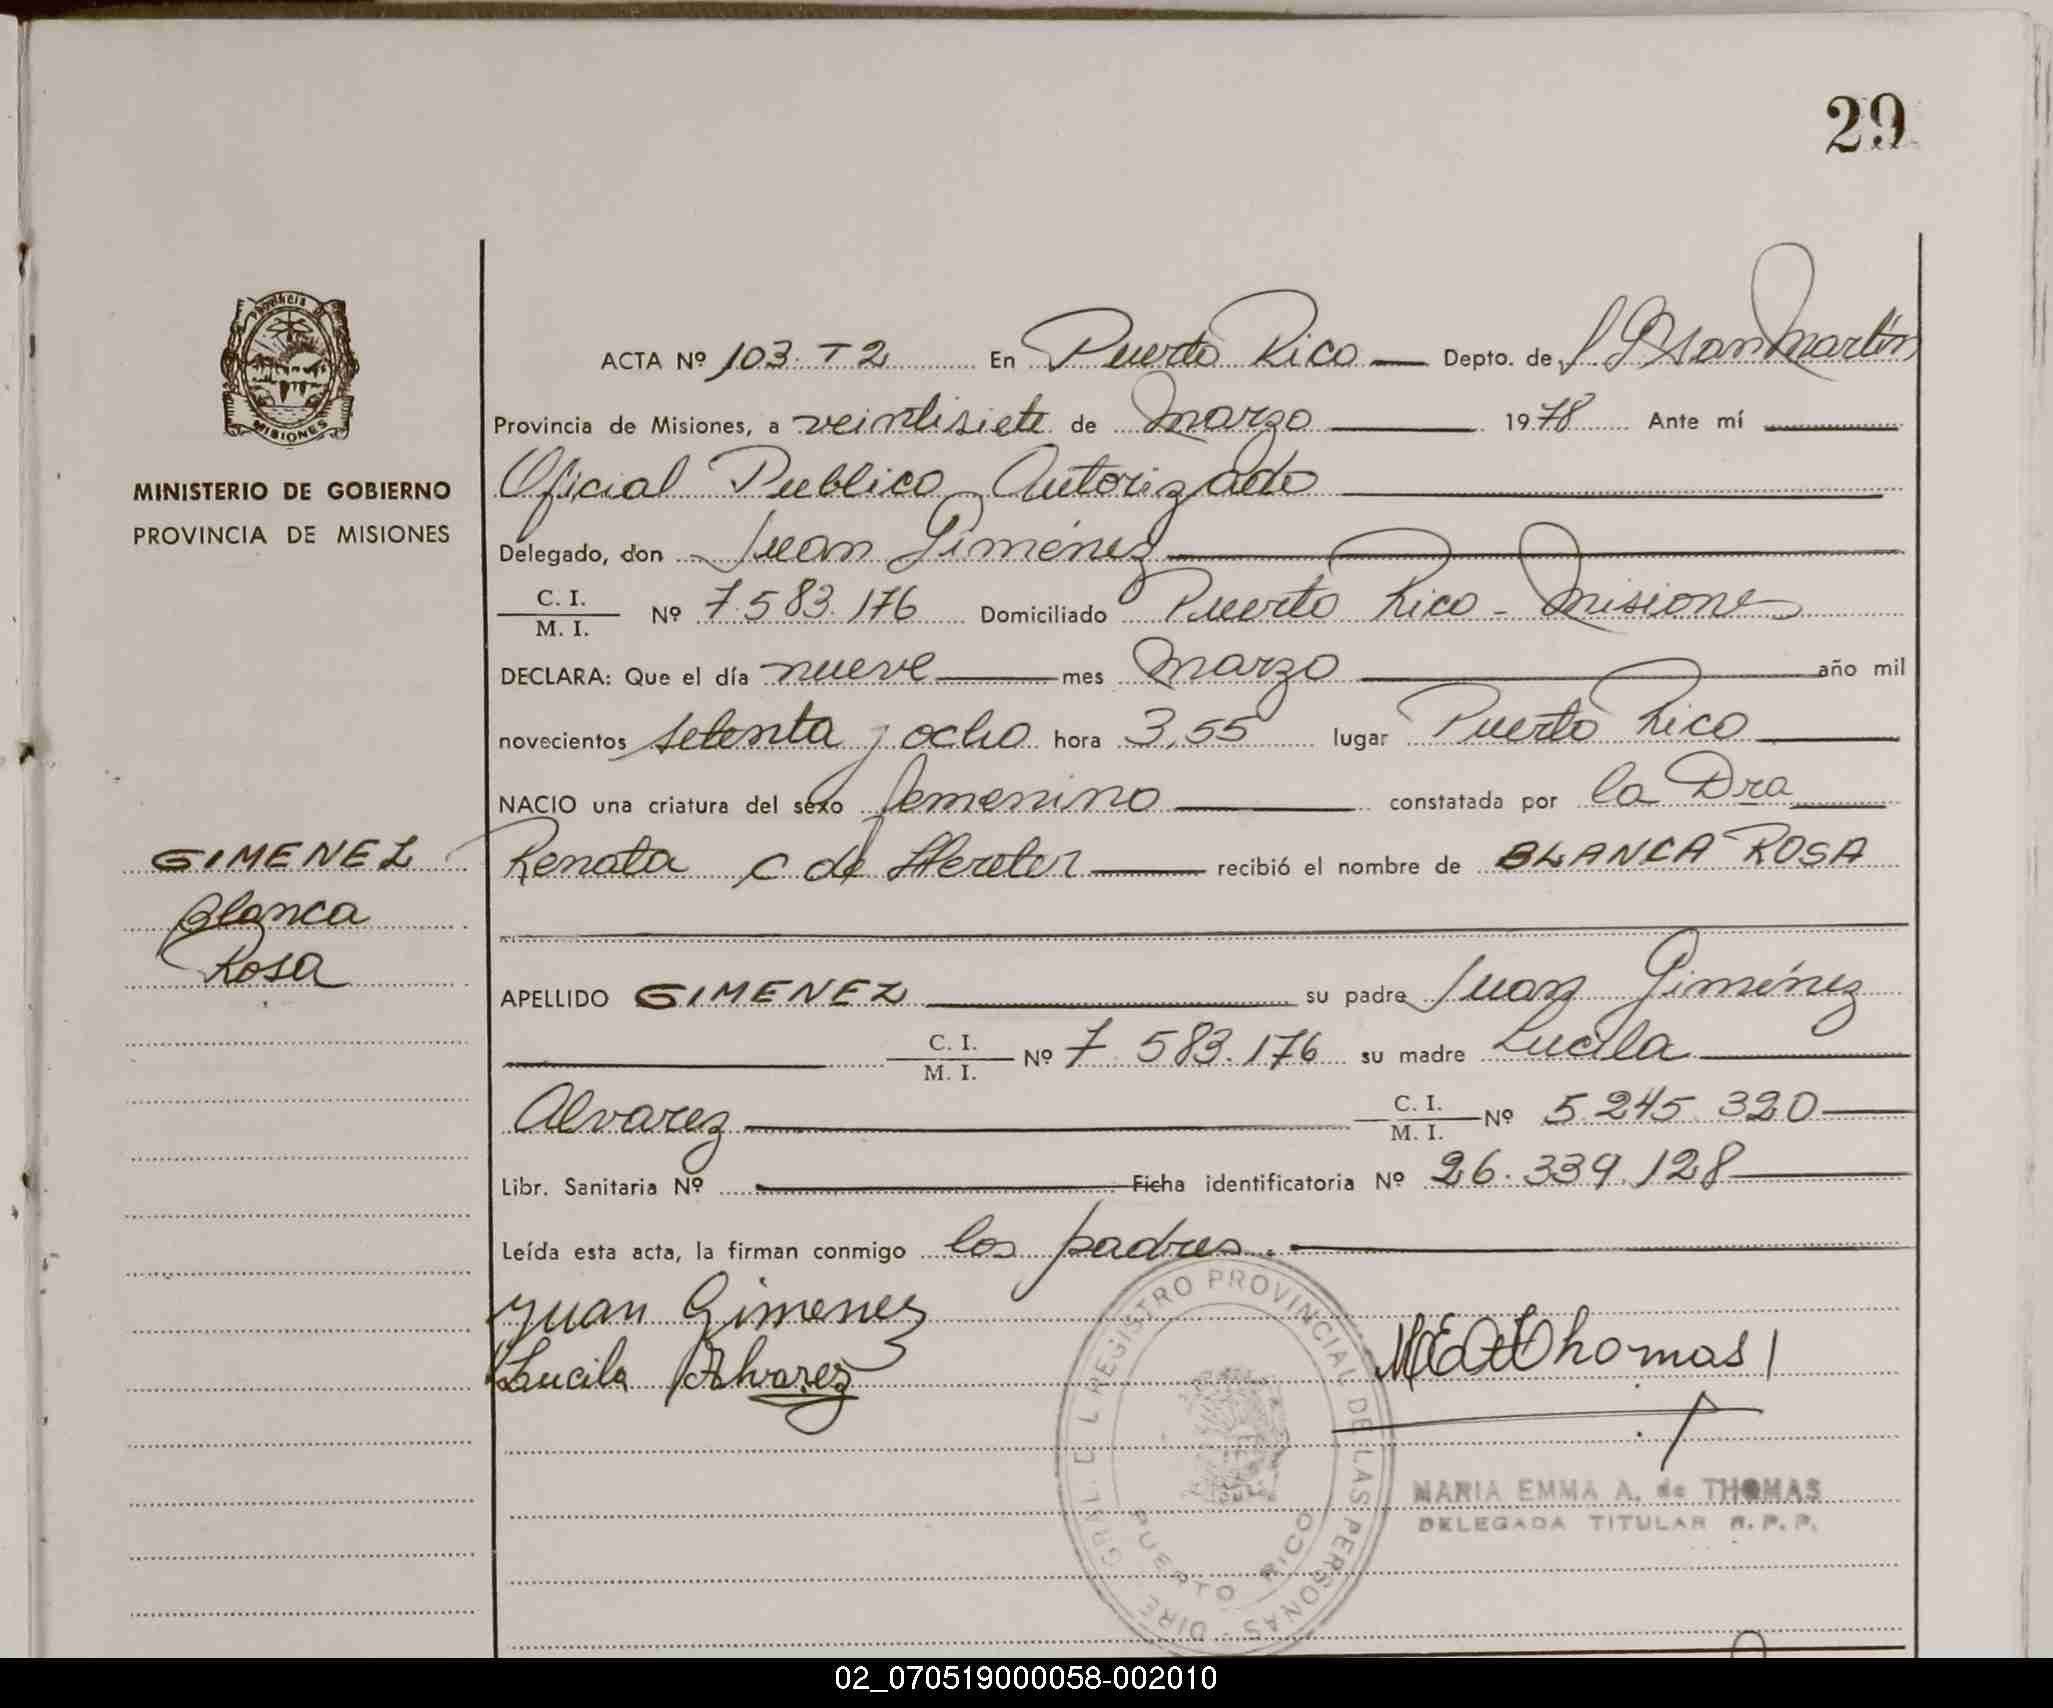 29
Provincia de
MISIONES
MINISTERIO DE GOBIERNO
PROVINCIA DE MISIONES
GIMENEZ
Blanca
Rosa
ACTA Nº 103 T2 En Puerto Rico Depto. de L G San Martín
Provincia de Misiones, a veintisiete de Marzo 1978 Ante mí
Oficial Publico Autorizado
Delegado, don Juan Giménez
C. I.
M. I. Nº 7.583.176 Domiciliado Puerto Rico - Misiones
DECLARA: Que el día nueve mes Marzo año mil
novecientos setenta y ocho hora 3,55 lugar Puerto Rico
NACIO una criatura del sexo femenino constatada por la Dra
Renata C de recibió el nombre de BLANCA ROSA
APELLIDO GIMENEZ su padre Juan Giménez
C. I.
M. I. Nº 7.583.176 su madre Lucila
Alvarez C. I.
M. I. Nº 5.245.320
Libr. Sanitaria Nº Ficha identificatoria Nº 26.339.128
Leída esta acta, la firman conmigo los padres.
Juan Gimenez
Lucila Alvarez
M E A de Thomas
MARIA EMMA A. de THOMAS
DELEGADA TITULAR R. P. P.
DIRE. GRAL. DEL REGISTRO PROVINCIAL DE LAS PERSONAS -
PUERTO RICO
02_070519000058-002010